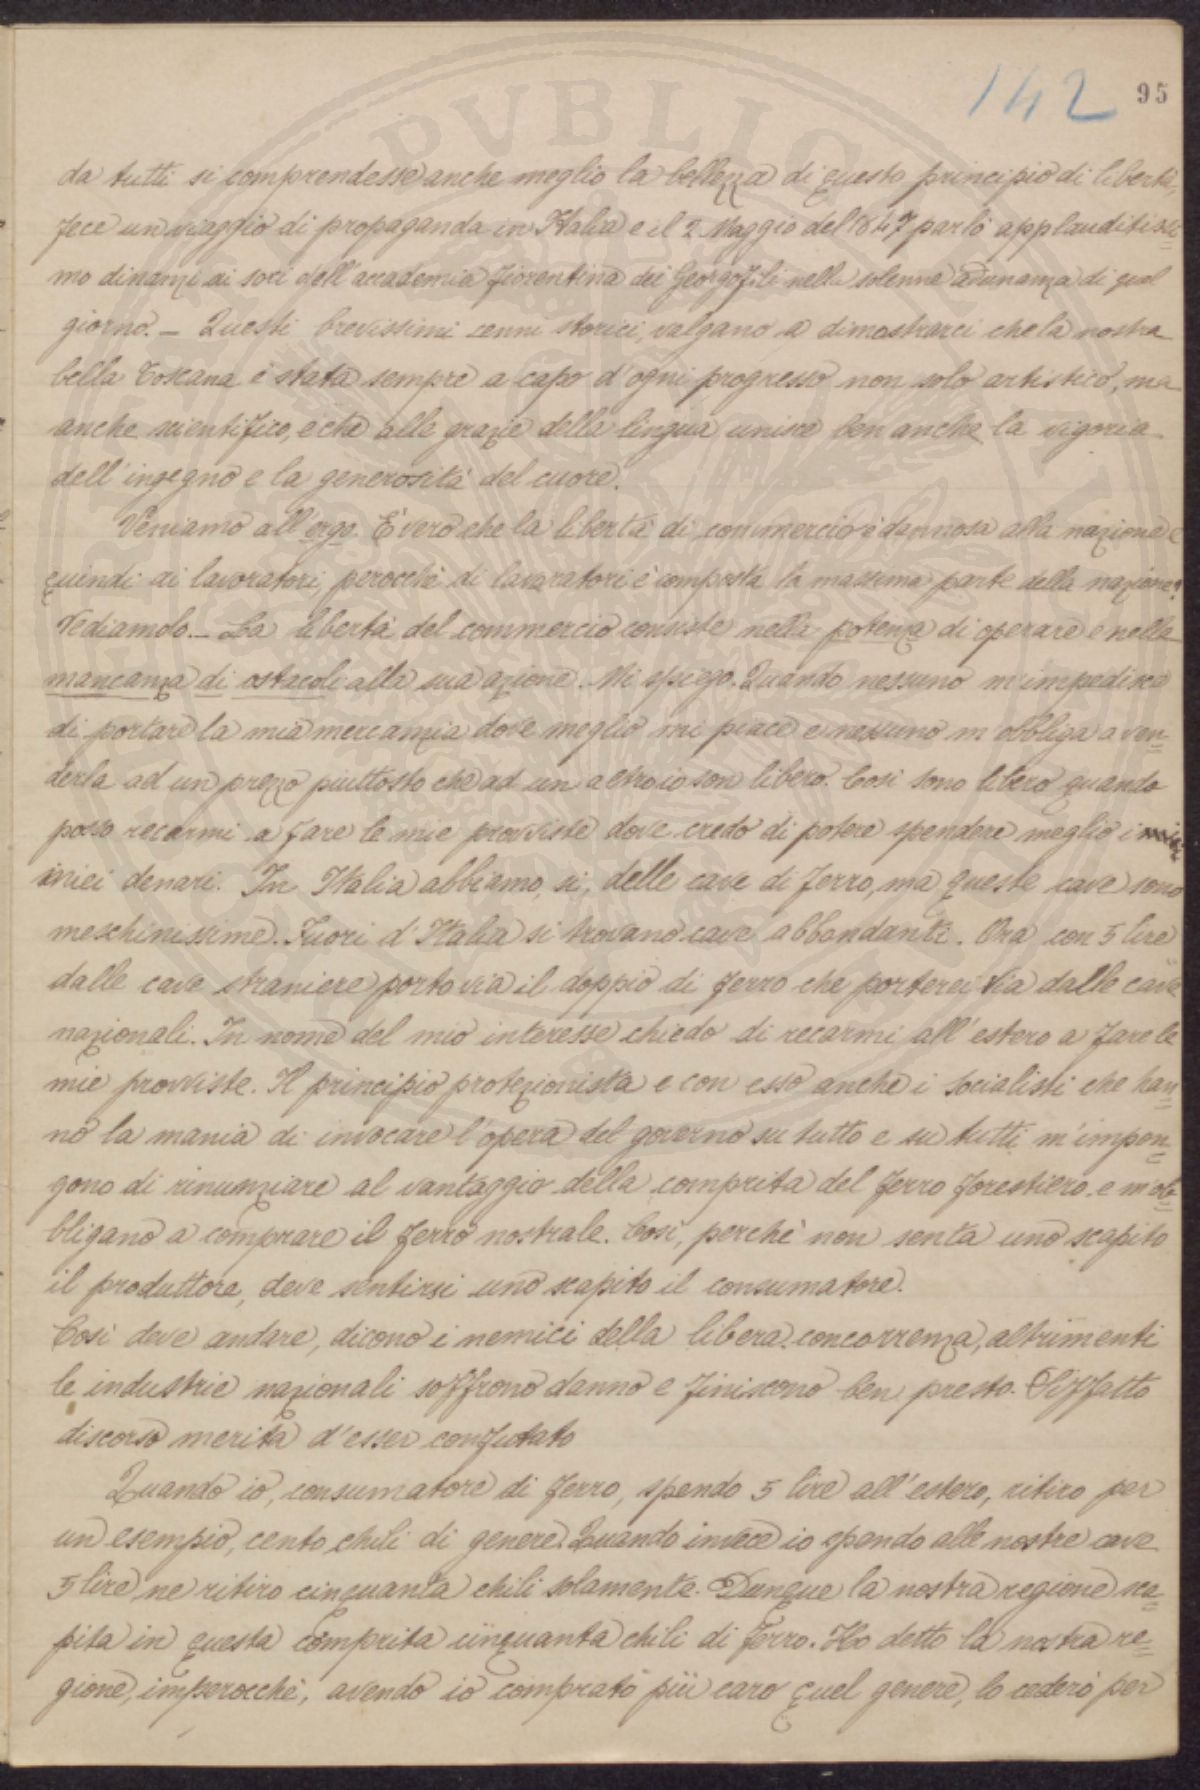 142 95
da tutti si comprendesse anche meglio la bellezza di questo principio di libertà,
fece un viaggio di propaganda in Italia e il 2 Maggio del 1847 parlò applauditissi=
mo dinanzi ai soci dell'accademia fiorentina dei Georgofili nella solenne adunanza di quel
giorno. — Questi brevissimi cenni storici, valgano a dimostrarci che la nostra
bella Toscana è stata sempre a capo d'ogni progresso non solo artistico, ma
anche scientifico, e che alle grazie della lingua unisce ben anche la vigoria
dell'ingegno e la generosità del cuore.
Veniamo all'ergo. È vero che la libertà di commercio è dannosa alla nazione e
quindi ai lavoratori, perocchè di lavoratori è composta la massima parte della nazione?
Vediamolo. — La libertà del commercio consiste nella potenza di operare e nella
mancanza di ostacoli alla sua azione. Mi spiego. Quando nessuno m'impedisce
di portare la mia mercanzia dove meglio mi piace e nessuno m'obbliga a ven=
derla ad un prezzo piuttosto che ad un altro io son libero. Così sono libero quando
posso recarmi a fare le mie provviste dove credo di potere spendere meglio i
miei denari. In Italia abbiamo, si, delle cave di ferro, ma queste cave sono
meschinissime. Fuori d'Italia si trovano cave abbondanti. Ora con 5 lire
dalle cave straniere porto via il doppio di ferro che porterei via dalle cave
nazionali. In nome del mio interesse chiedo di recarmi all'estero a fare le
mie provviste. Il principio protezionista e con esso anche i socialisti che han=
no la mania di invocare l'opera del governo su tutto e su tutti m'impon=
gono di rinunziare al vantaggio della comprita del ferro forestiero e m'ob=
bligano a comprare il ferro nostrale. Così, perchè non senta uno scapito
il produttore, deve sentirsi uno scapito il consumatore.
Così deve andare, dicono i nemici della libera concorrenza, altrimenti
le industrie nazionali soffrono danno e finiscono ben presto. Siffatto
discorso merita d'esser confutato
Quando io, consumatore di ferro, spendo 5 lire all'estero, ritiro per
un esempio, cento chili di genere. Quando invece io spendo alle nostre cave
5 lire ne ritiro cinquanta chili solamente. Dunque la nostra regione sca=
pita in questa comprita cinquanta chili di ferro. Ho detto la nostra re=
gione, imperocchè, avendo io comprato più caro quel genere, lo cederò per